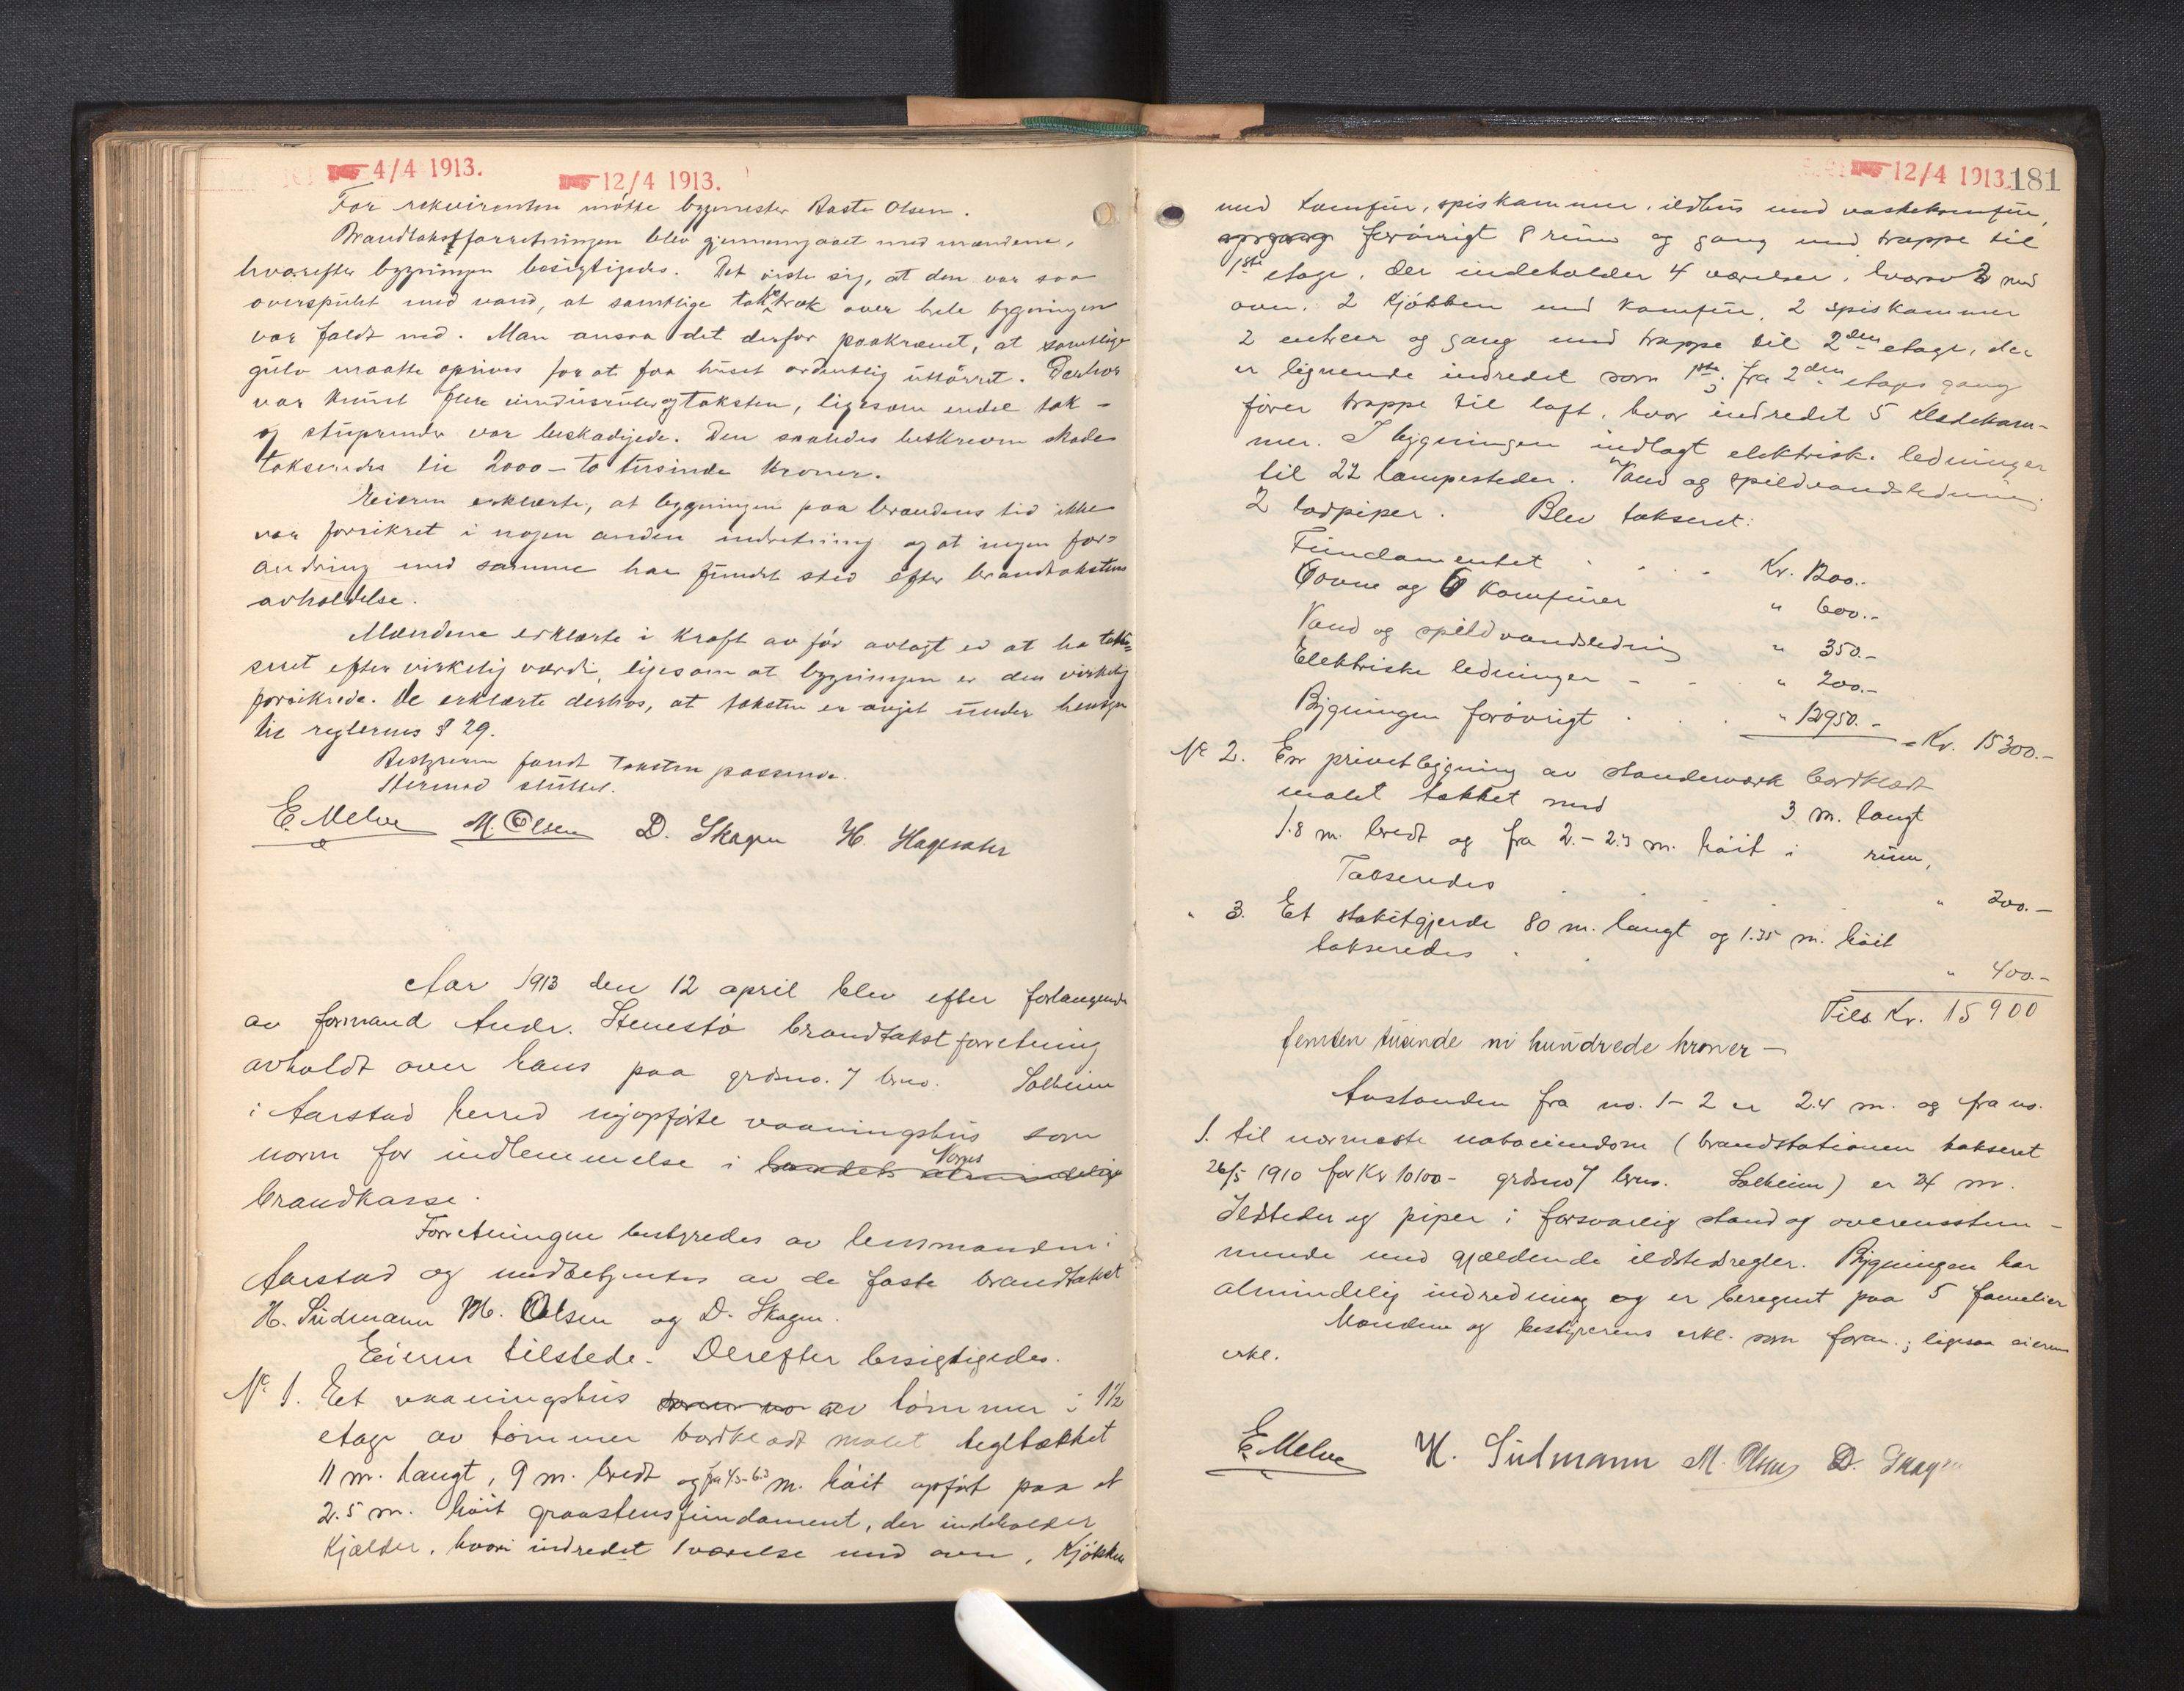 4/4 1913.
12/4 1913.
For rekvirenten møtte bygmester Baste Olsen.
Brandtakstforretningen blev gjennemgaaet med mændene,
hvorefter bygningen besigtigedes. Det viste sig, at den var saa
overspulet med vand, at samtlige taktræk over hele bygningen
var faldt ned. Man ansaa det derfor paakrævet, at samtlige
gulv maatte oprives for at faa huset ordentlig uttørret. Derhos
var knust flere vinduesruter og taksten, ligesom endel tak-
og stuprender var beskadiget. Den saaledes beskrevne skade
takseredes til 2000 - to tusinde kroner.
Eieren erklærte, at bygningen paa brandens tid ikke
var forsikret i nogen anden indretning og at ingen for-
andring med samme har fundet sted efter brandtakstens
avholdelse.
Mændene erklærte i kraft av før avlagt ed at ha tak-
seret efter virkelig værdi, ligesom at bygningen er den virkelig
forsikrede. De erklærte derhos, at taksten er avgit under hensyn
til reglernes § 29.
Bestyreren fandt taksten passende.
Hermed sluttet.
E. Melve M. Olsen D. Skagen H. Hagesæter
Aar 1913 den 12 april blev efter forlangende
av formand Andr. Stenestø brandtakstforretning
avholdt over hans paa grdsno. 7 brno. Solheim
i Aarstad herred nyopførte vaaningshus som
norm for indlemmelse i landets almindelige Norges
brandkasse.
Forretningen bestyredes av lensmanden i
Aarstad og medbetjentes av de faste brandtakst
H. Sudmann M. Olsen og D. Skagen.
Eieren tilstede. Derefter besigtigedes.
No. 1. Et vaaningshus av tømmer i 1½
etage av tømmer bordklædt malet tegltækket
11 m. langt, 9 m. bredt og fra 4.5-6.3 m. høit opført paa et
2.5 m. høit graastensfundament, der indeholder
Kjælder, hvori indredet 1 værelse med ovn, Kjøkken
12/4 1913. 181
med komfur, spiskammer, ildhus med vaskekomfur,
opgang forøvrigt 8 rum og gang med trappe til
1ste etage, der indeholder 4 værelser, hvorav 2 med
ovn, 2 Kjøkken med komfur, 2 spiskammer
2 entreer og gang med trappe til 2den etage, der
er lignende indredet som 1ste; fra 2den etages gang
fører trappe til loft, hvor indredet 5 klædekam-
mer. I bygningen indlagt elektrisk. ledninger
til 22 lampesteder. Vand og spildvandsledning.
2 lodpiper. Blev takseret:
Fundamentet . . . . Kr. 1200.-
6 ovne og 6 komfurer " 600.-
Vand og spildvandsledning " 350.-
Elektriske ledninger - - . " 200.-
Bygningen forøvrigt . . . " 12950.- = Kr. 15300.-
No. 2. En privetbygning av standerværk bordklædt
malet tækket med 3 m. langt
1.8 m. bredt og fra 2.- 2.3 m. høit i rum,
Takseredes . . . . " 200.-
" 3. Et stakitgjerde 80 m. langt og 1.35 m. høit
takseredes . . " 400.-
Tils. Kr. 15900
femten tusinde ni hundrede kroner -
Avstanden fra no. 1-2 er 2.4 m. og fra no.
1. til nærmeste naboeiendom (brandstationen takseret
26/5 1910 for Kr 10100- grdsno 7 brno. Solheim) er 24 m.
Ildsteder og piper i forsvarlig stand og overensstem-
mende med gjældende ildstedsregler. Bygningen har
almindelig indredning og er beregnet paa 5 familier
Mændene og bestyrerens erkl. som foran.; ligesaa eierens
erkl.
E. Melve H. Sudmann M. Olsen D. Skagen